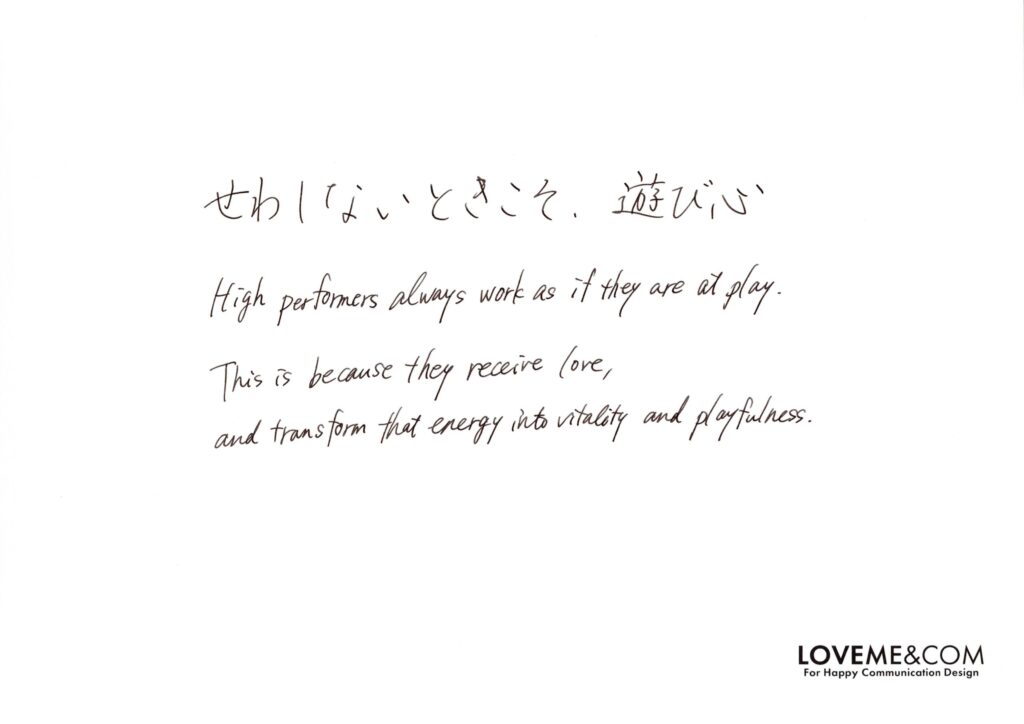 せわしないときこそ、遊び心
High performers always work as if they are at play.
This is because they receive love,
and transform that energy into vitality and playfulness.
LOVEME&COM
For Happy Communication Design